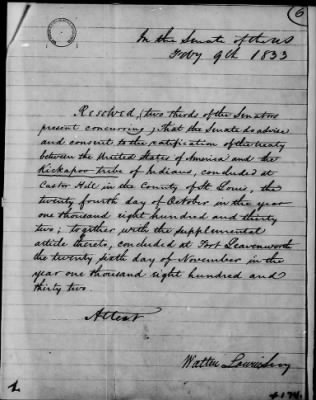 6
In the Senate of the US
Feby 9th 1833
Resolved, (two thirds of the Senators
present concurring) that the Senate do advise
and consent to the ratification of the treaty
between the United States of America and the
Kickapoo tribe of Indians, concluded at
Castor Hill in the County of St Louis, the
twenty fourth day of October in the year
one thousand eight hundred and thirty
two; together with the supplemental
article thereto, concluded at Fort Leavenworth
the twenty sixth day of November in the
year one thousand eight hundred and
thirty two.
Attest
Walter Lowrie Secy